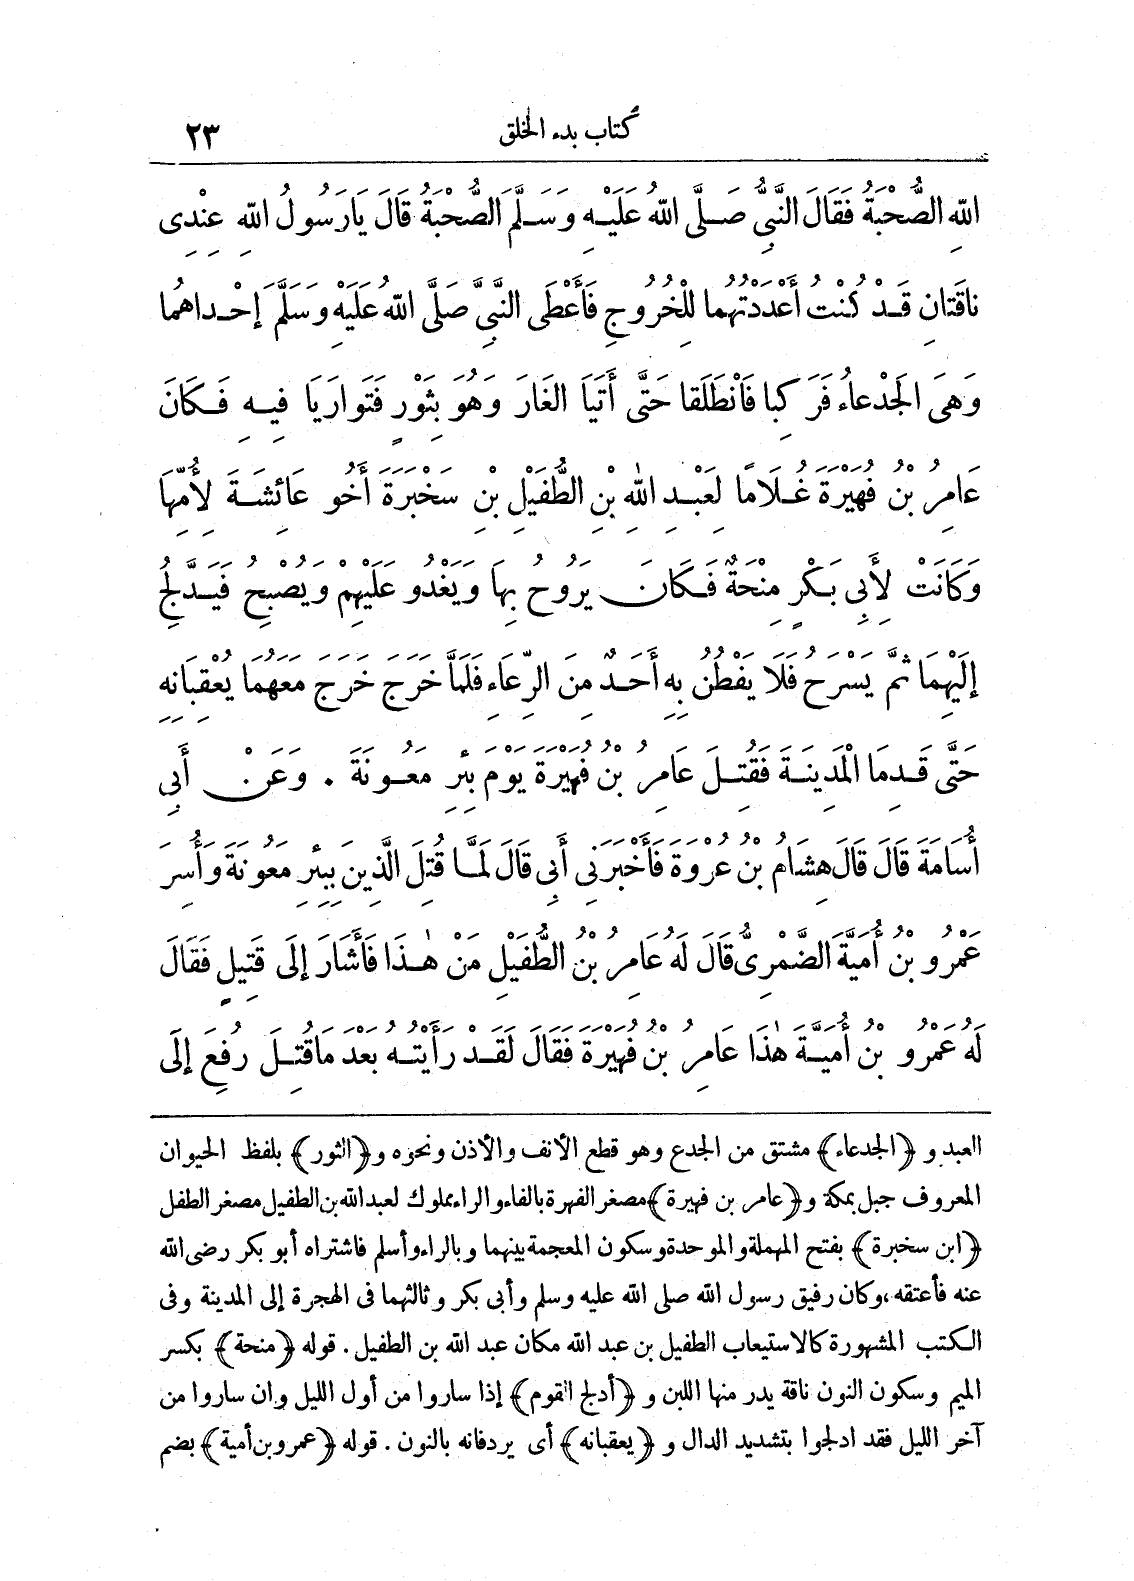 كتاب بدء الخلق ٢٣
اللَّهِ الصُّحْبَةُ فَقَالَ النَّبِيُّ صَلَّى اللَّهُ عَلَيْهِ وَسَلَّمَ الصُّحْبَةُ قَالَ يَا رَسُولُ اللَّهِ عِنْدِى
نَاقَتَانِ قَدْ كُنْتُ أَعْدَدْتُهُمَا لِلْخُرُوجِ فَأَعْطَى النَّبِيَّ صَلَّى اللَّهُ عَلَيْهِ وَسَلَّمَ إِحْدَاهُمَا
وَهِىَ الْجَدْعَاءُ فَرَكِبَا فَانْطَلَقَا حَتَّى أَتَيَا الْغَارَ وَهُوَ بِثَوْرٍ فَتَوَارَيَا فِيهِ فَكَانَ
عَامِرُ بْنُ فُهَيْرَةَ غُلَامًا لِعَبْدِ اللَّهِ بْنِ الطُّفَيْلِ بْنِ سَخْبَرَةَ أَخُو عَائِشَةَ لِأُمِّهَا
وَكَانَتْ لِأَبِى بَكْرٍ مِنْحَةٌ فَكَانَ يَرُوحُ بِهَا وَيَغْدُو عَلَيْهِمْ وَيُصْبِحُ فَيَدَّلِجُ
إِلَيْهِمَا ثُمَّ يَسْرَحُ فَلَا يَفْطُنُ بِهِ أَحَدٌ مِنَ الرِّعَاءِ فَلَمَّا خَرَجَ خَرَجَ مَعَهُمَا يُعْقِبَانِهِ
حَتَّى قَدِمَا الْمَدِينَةَ فَقُتِلَ عَامِرُ بْنُ فُهَيْرَةَ يَوْمَ بِئْرِ مَعُونَةَ . وَعَنْ أَبِى
أُسَامَةَ قَالَ قَالَ هِشَامُ بْنُ عُرْوَةَ فَأَخْبَرَنِى أَبِى قَالَ لَمَّا قُتِلَ الَّذِينَ بِبِئْرِ مَعُونَةَ وَأُسِرَ
عَمْرُو بْنُ أُمَيَّةَ الضَّمْرِىُّ قَالَ لَهُ عَامِرُ بْنُ الطُّفَيْلِ مَنْ هٰذَا فَأَشَارَ إِلَى قَتِيلٍ فَقَالَ
لَهُ عَمْرُو بْنُ أُمَيَّةَ هٰذَا عَامِرُ بْنُ فُهَيْرَةَ فَقَالَ لَقَدْ رَأَيْتُهُ بَعْدَ مَا قُتِلَ رُفِعَ إِلَى
العبد و ﴿الجدعاء﴾ مشتق من الجدع وهو قطع الأنف والأذن ونحوه و﴿الثور﴾ بلفظ الحيوان
المعروف جبل بمكة و﴿عامر بن فهيرة﴾ مصغر الفهرة بالفاء والراء مملوك لعبد الله بن الطفيل مصغر الطفل
﴿ابن سخبرة﴾ بفتح المهملة والموحدة وسكون المعجمة بينهما وبالراء وأسلم فاشتراه أبو بكر رضى الله
عنه فأعتقه، وكان رفيق رسول الله صلى الله عليه وسلم وأبى بكر وثالثهما فى الهجرة إلى المدينة وفى
الكتب المشهورة كالاستيعاب الطفيل بن عبد الله مكان عبد الله بن الطفيل . قوله ﴿منحة﴾ بكسر
الميم وسكون النون ناقة يدر منها اللبن و ﴿أدلج القوم﴾ إذا ساروا من أول الليل وان ساروا من
آخر الليل فقد ادلجوا بتشديد الدال و ﴿يعقبانه﴾ أى يردفانه بالنون . قوله ﴿عمرو بن أمية﴾ بضم